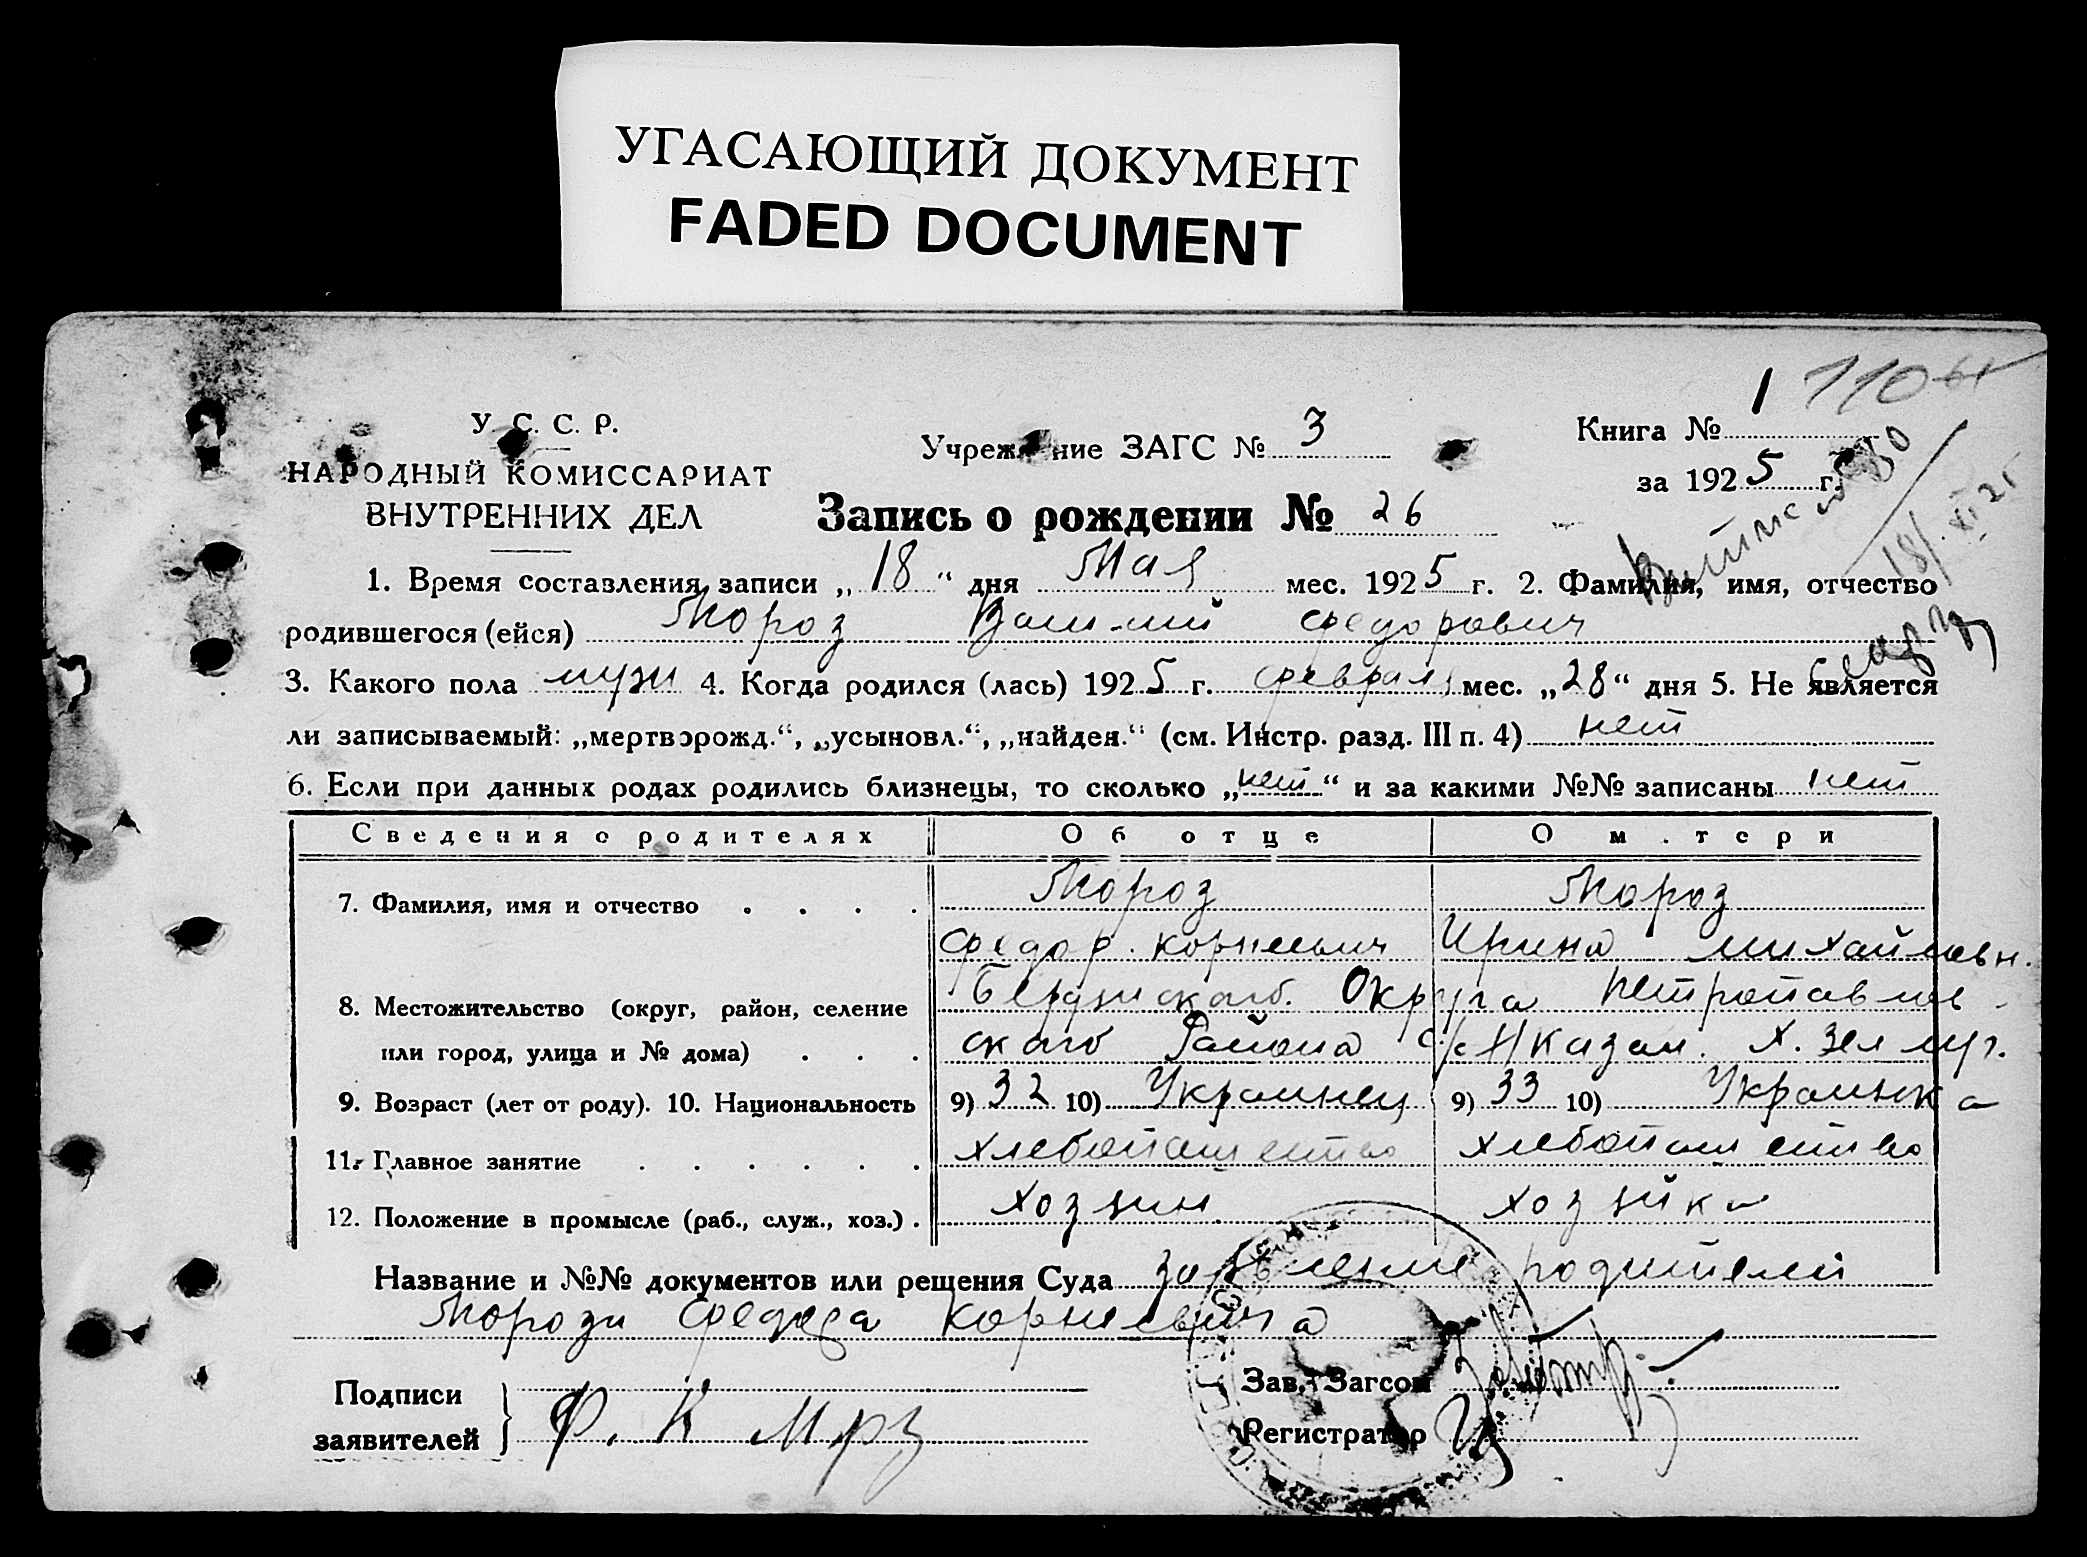 УГАСАЮЩИЙ ДОКУМЕНТ
FADED DOCUMENT
1 110
У. С. С. Р.
НАРОДНЫЙ КОМИССАРИАТ
ВНУТРЕННИХ ДЕЛ
Учреждение ЗАГС № 3
Книга №
за 1925 г.
Запись о рождении № 26
1. Время составления записи „18“ дня Мая мес. 1925 г. 2. Фамилия, имя, отчество
родившегося (ейся) Мороз Федорович
3. Какого пола муж 4. Когда родился (лась) 1925 г. февраля мес. „28“ дня 5. Не является
ли записываемый: „мертворожд.“, „усыновл.“, „найден.“ (см. Инстр. разд. III п. 4) нет
6. Если при данных родах родились близнецы, то сколько „нет“ и за какими №№ записаны нет
Сведения о родителях Об отце О м.тери
7. Фамилия, имя и отчество Мороз Мороз
Федор Корнеевич Ирина Михайловн.
8. Местожительство (округ, район, селение Бердянского Округа Петропавлов-
или город, улица и № дома) ского Района с/с Н Казан. х.
9. Возраст (лет от роду). 10. Национальность 9) 32 10) Украинец 9) 33 10) Украинка
11. Главное занятие хлебопашество хлебопашество
12. Положение в промысле (раб., служ., хоз.) хозяин хозяйка
Название и №№ документов или решения Суда заявление родителей
Мороза Федора Корнеевича
Подписи
заявителей Ф. К Мрз
Зав. Загсом
Регистратор